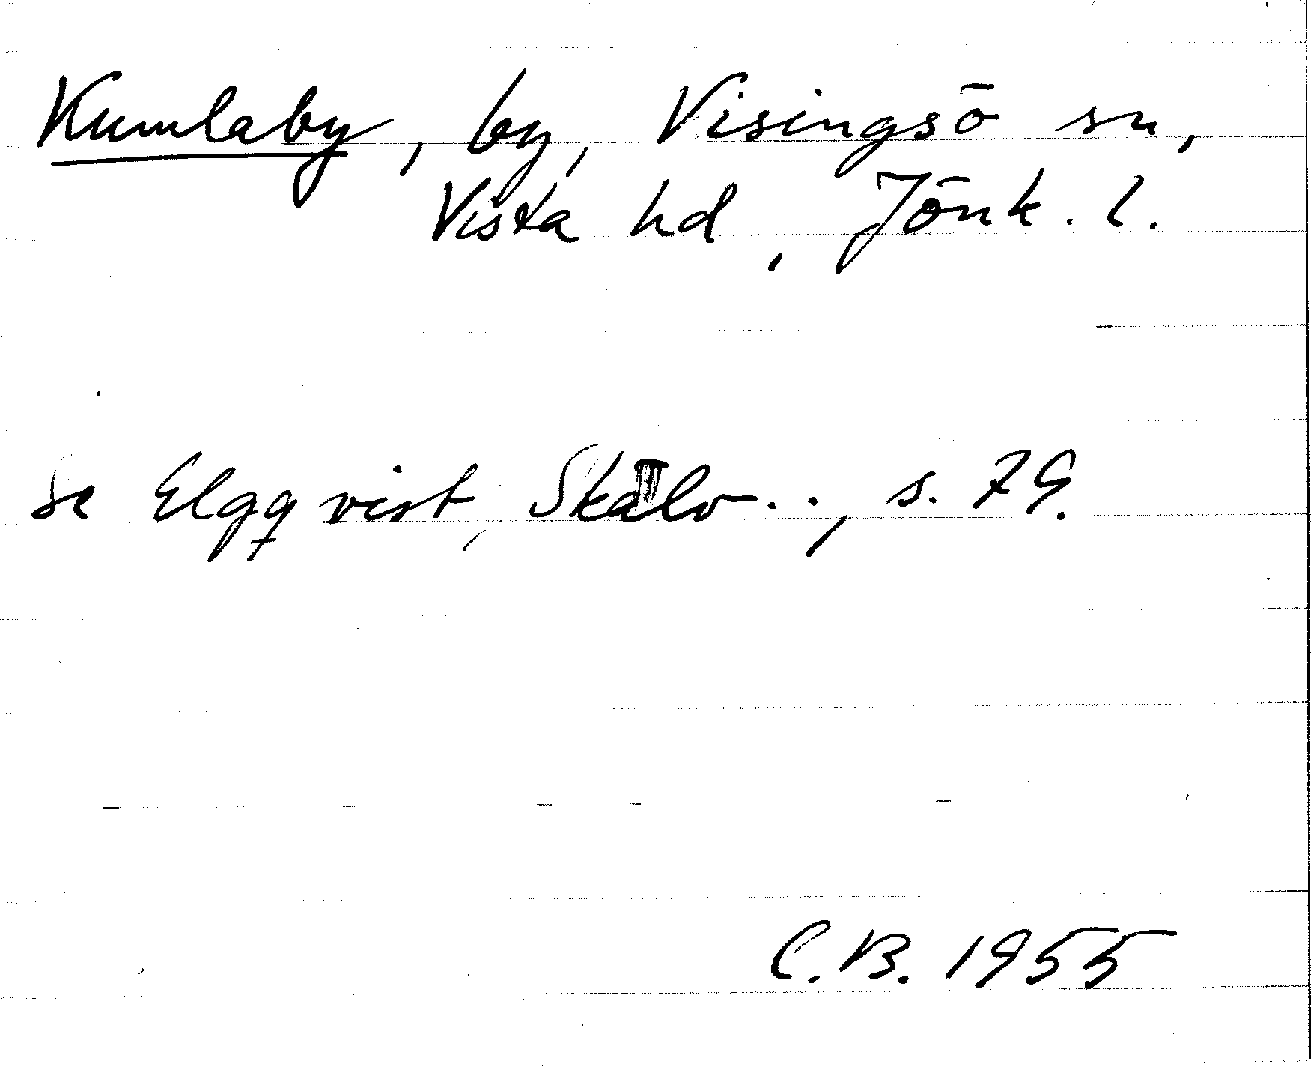 Kumlaby, by, Visingsö sn,
Vista hd, Jönk. l.
Se Elgqvist, Skälv.., s. 79.
C.B. 1955